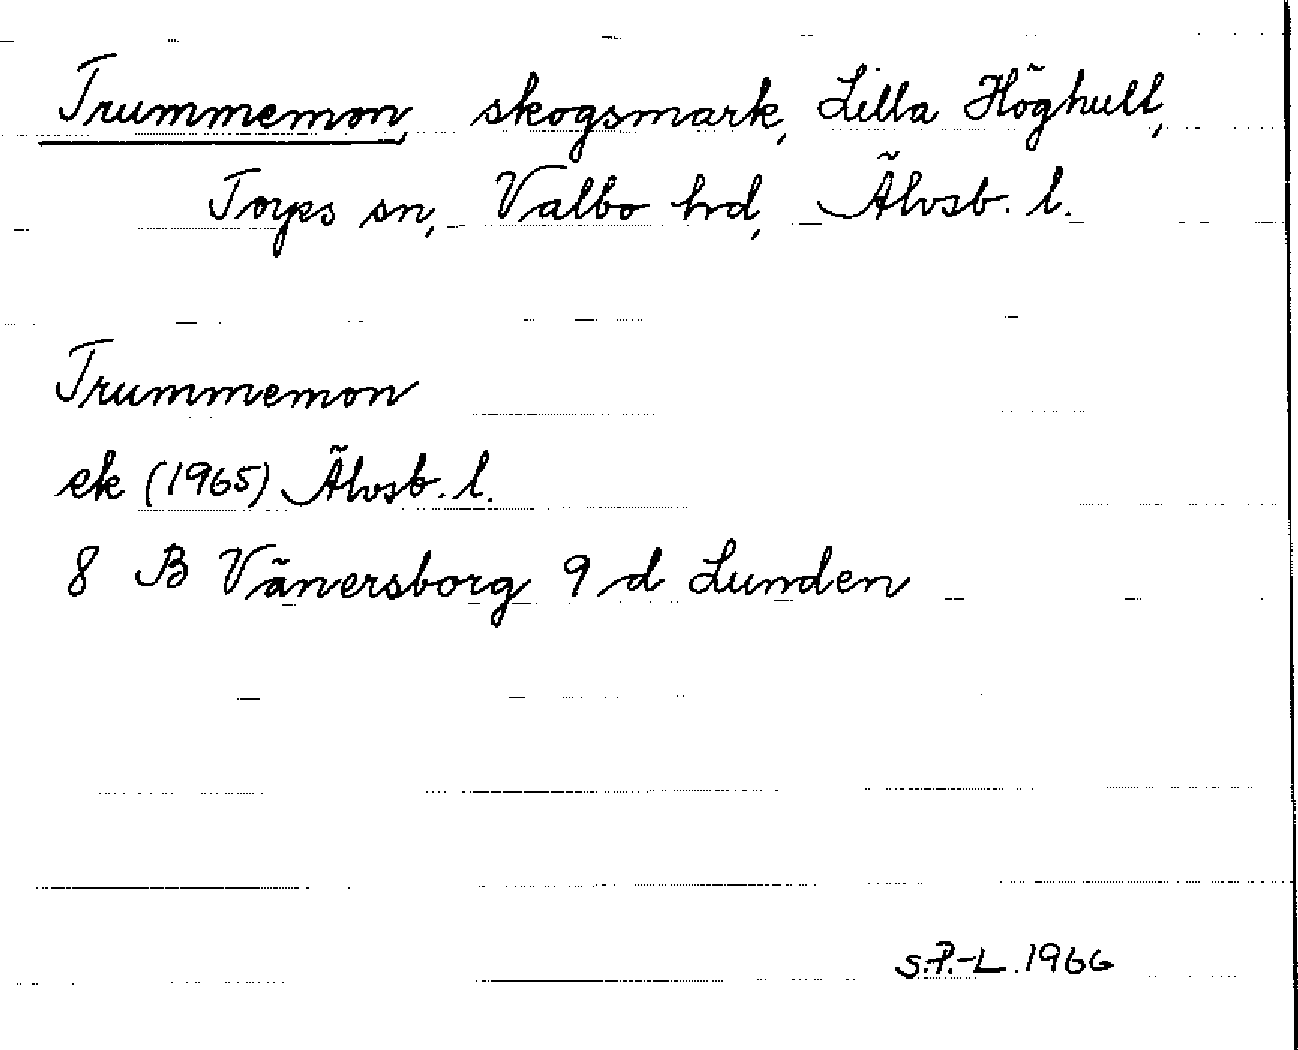 Trummemon, skogsmark, Lilla Höghult,
Torps sn, Valbo hrd, Älvsb. l.
Trummemon
ek (1965) Älvsb. l.
8 B Vänersborg 9 d Lunden
S.P.-L. 1966